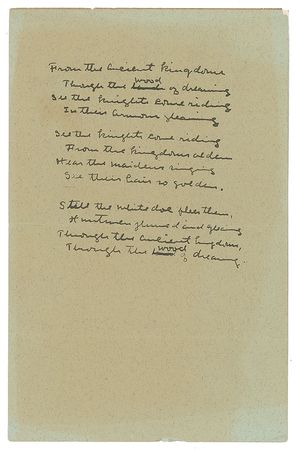 From the ancient kingdoms
Through the wood of dreaming
See the knights come riding
In their armour gleaming
See the knights come riding
From the kingdoms olden
Hear the maidens singing
See their hair so golden.
Still the white doe flees them,
Huntsmen plumed and
Through the ancient kingdoms,
Through the wood of dreaming.